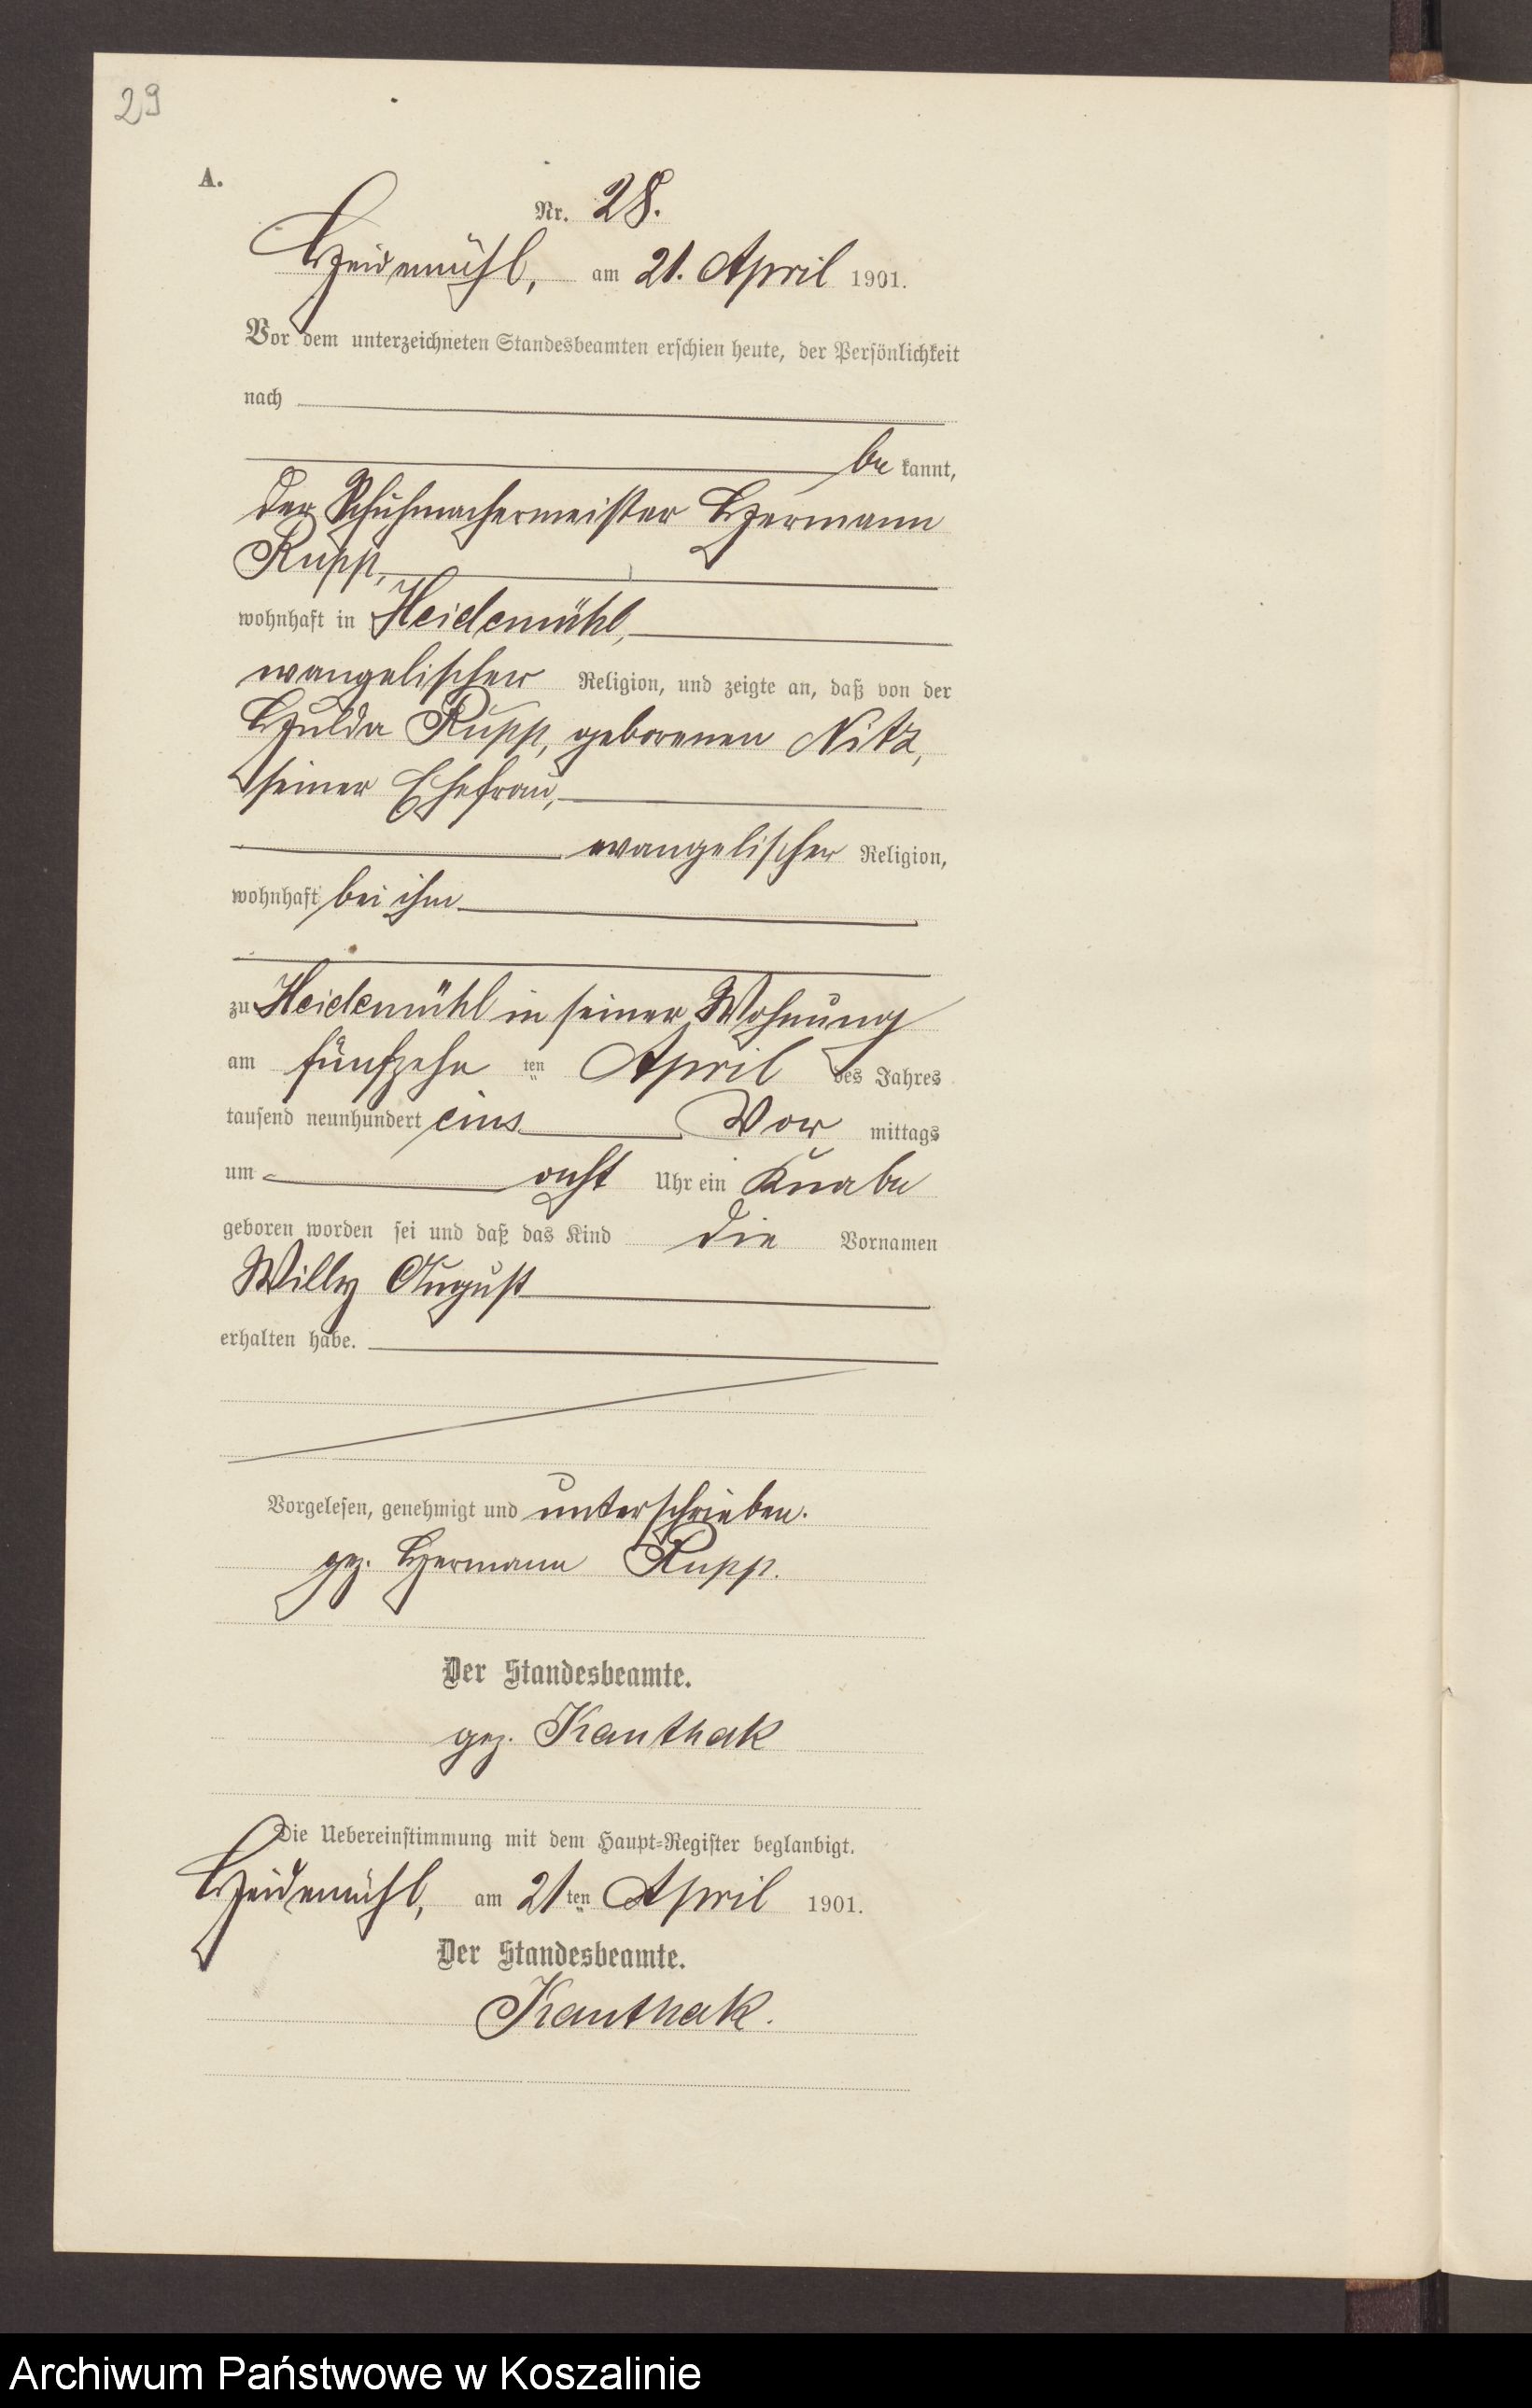 29
A.
Nr. 28.
Heidemühl, am 21. April 1901.
Vor dem unterzeichneten Standesbeamten erschien heute, der Persönlichkeit
nach
be kannt,
der Schuhmachermeister Hermann
Rupp,
wohnhaft in Heidemühl,
evangelischer Religion, und zeigte an, daß von der
Hulda Rupp, geborenen Nitz,
seiner Ehefrau,
evangelischer Religion,
wohnhaft bei ihm
zu Heidemühl in seiner Wohnung
am fünfzehn ten April des Jahres
tausend neunhundert eins Vor mittags
um acht Uhr ein Knabe
geboren worden sei und daß das Kind die Vornamen
Willy August
erhalten habe.
Vorgelesen, genehmigt und unterschrieben.
gez. Hermann Rupp.
Der Standesbeamte.
gez. Kanthak
Die Uebereinstimmung mit dem Haupt-Register beglaubigt.
Heidemühl, am 21 ten April 1901.
Der Standesbeamte.
Kanthak.
Archiwum Państwowe w Koszalinie